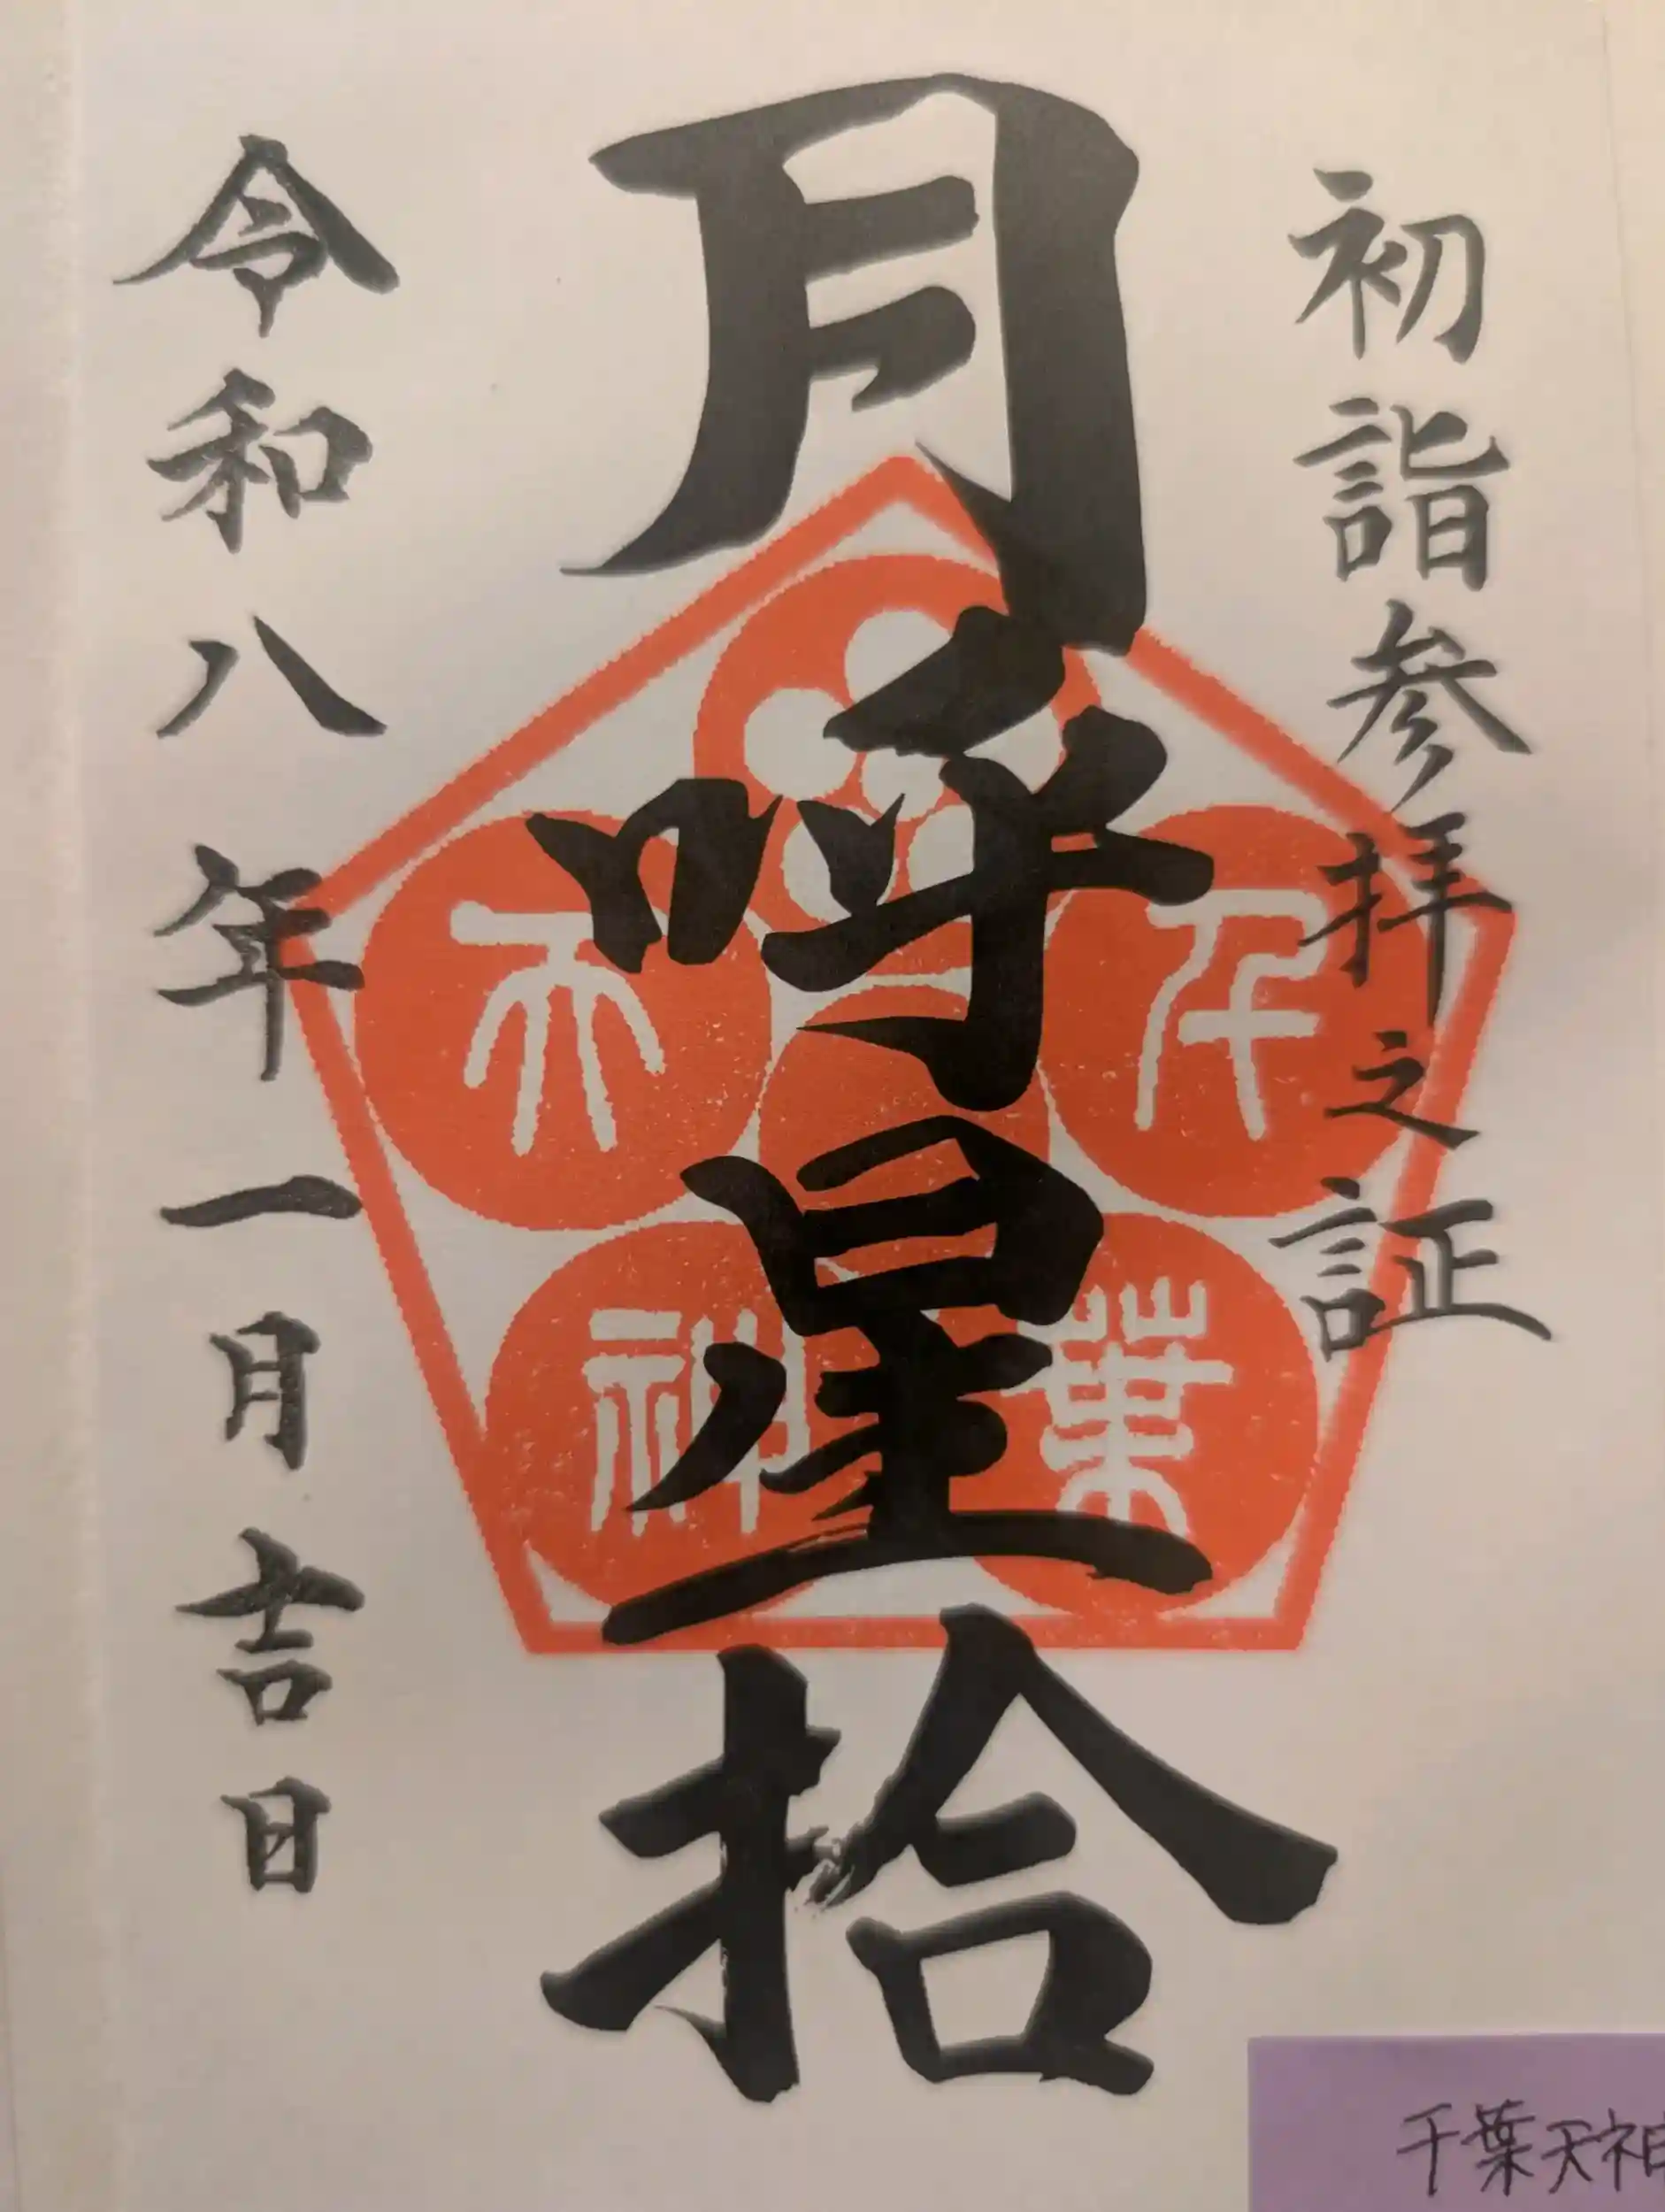 初詣参拝之証
月呼星拾
千葉天神
令和八年一月吉日
千葉天神